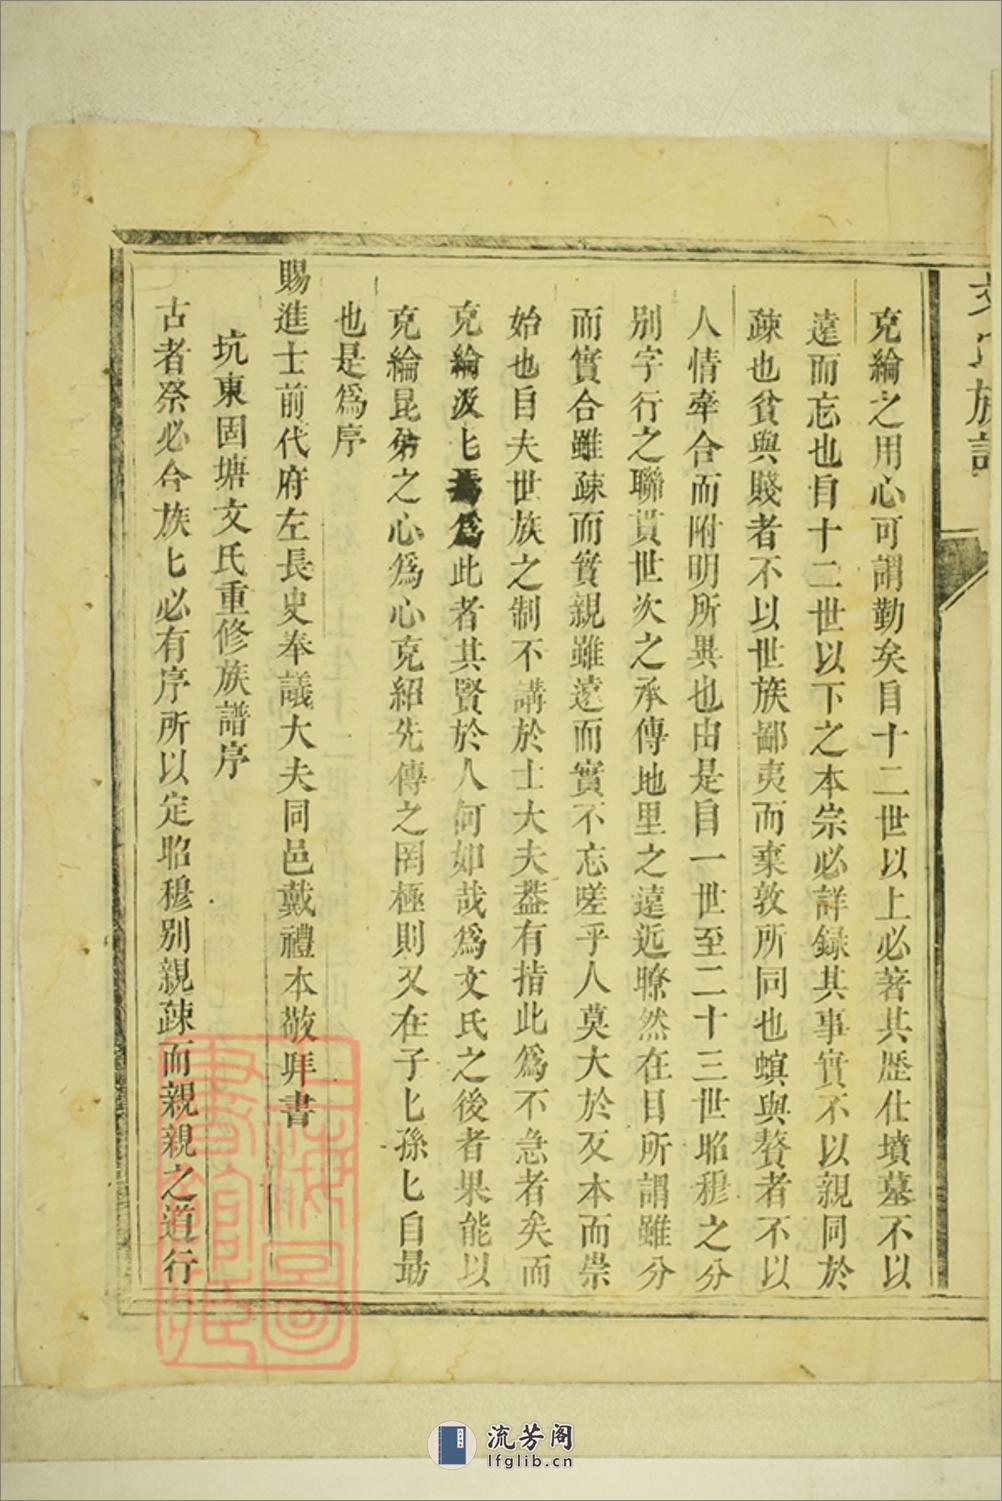 文氏族譜
克綸之用心可謂勤矣自十二世以上必著其歷仕墳墓不以
遠而忘也自十二世以下之本宗必詳録其事實不以親同於
疎也貧與賤者不以世族鄙夷而棄敦所同也螟與贅者不以
人情牽合而附明所異也由是自一世至二十三世昭穆之分
別字行之聯貫世次之承傳地里之遠近瞭然在目所謂雖分
而實合雖疎而實親雖遠而實不忘嗟乎人莫大於反本而崇
始也自夫世族之制不講於士大夫葢有指此爲不急者矣而
克綸汲匕焉爲此者其賢於人何如哉爲文氏之後者果能以
克綸昆弟之心爲心克紹先傳之罔極則又在子匕孫匕自勗
也是爲序
賜進士前代府左長史奉議大夫同邑戴禮本敬拜書
坑東固塘文氏重修族譜序
古者祭必合族匕必有序所以定昭穆別親疎而親親之道行
上海圖
書館藏
流芳阁
lfglib.cn